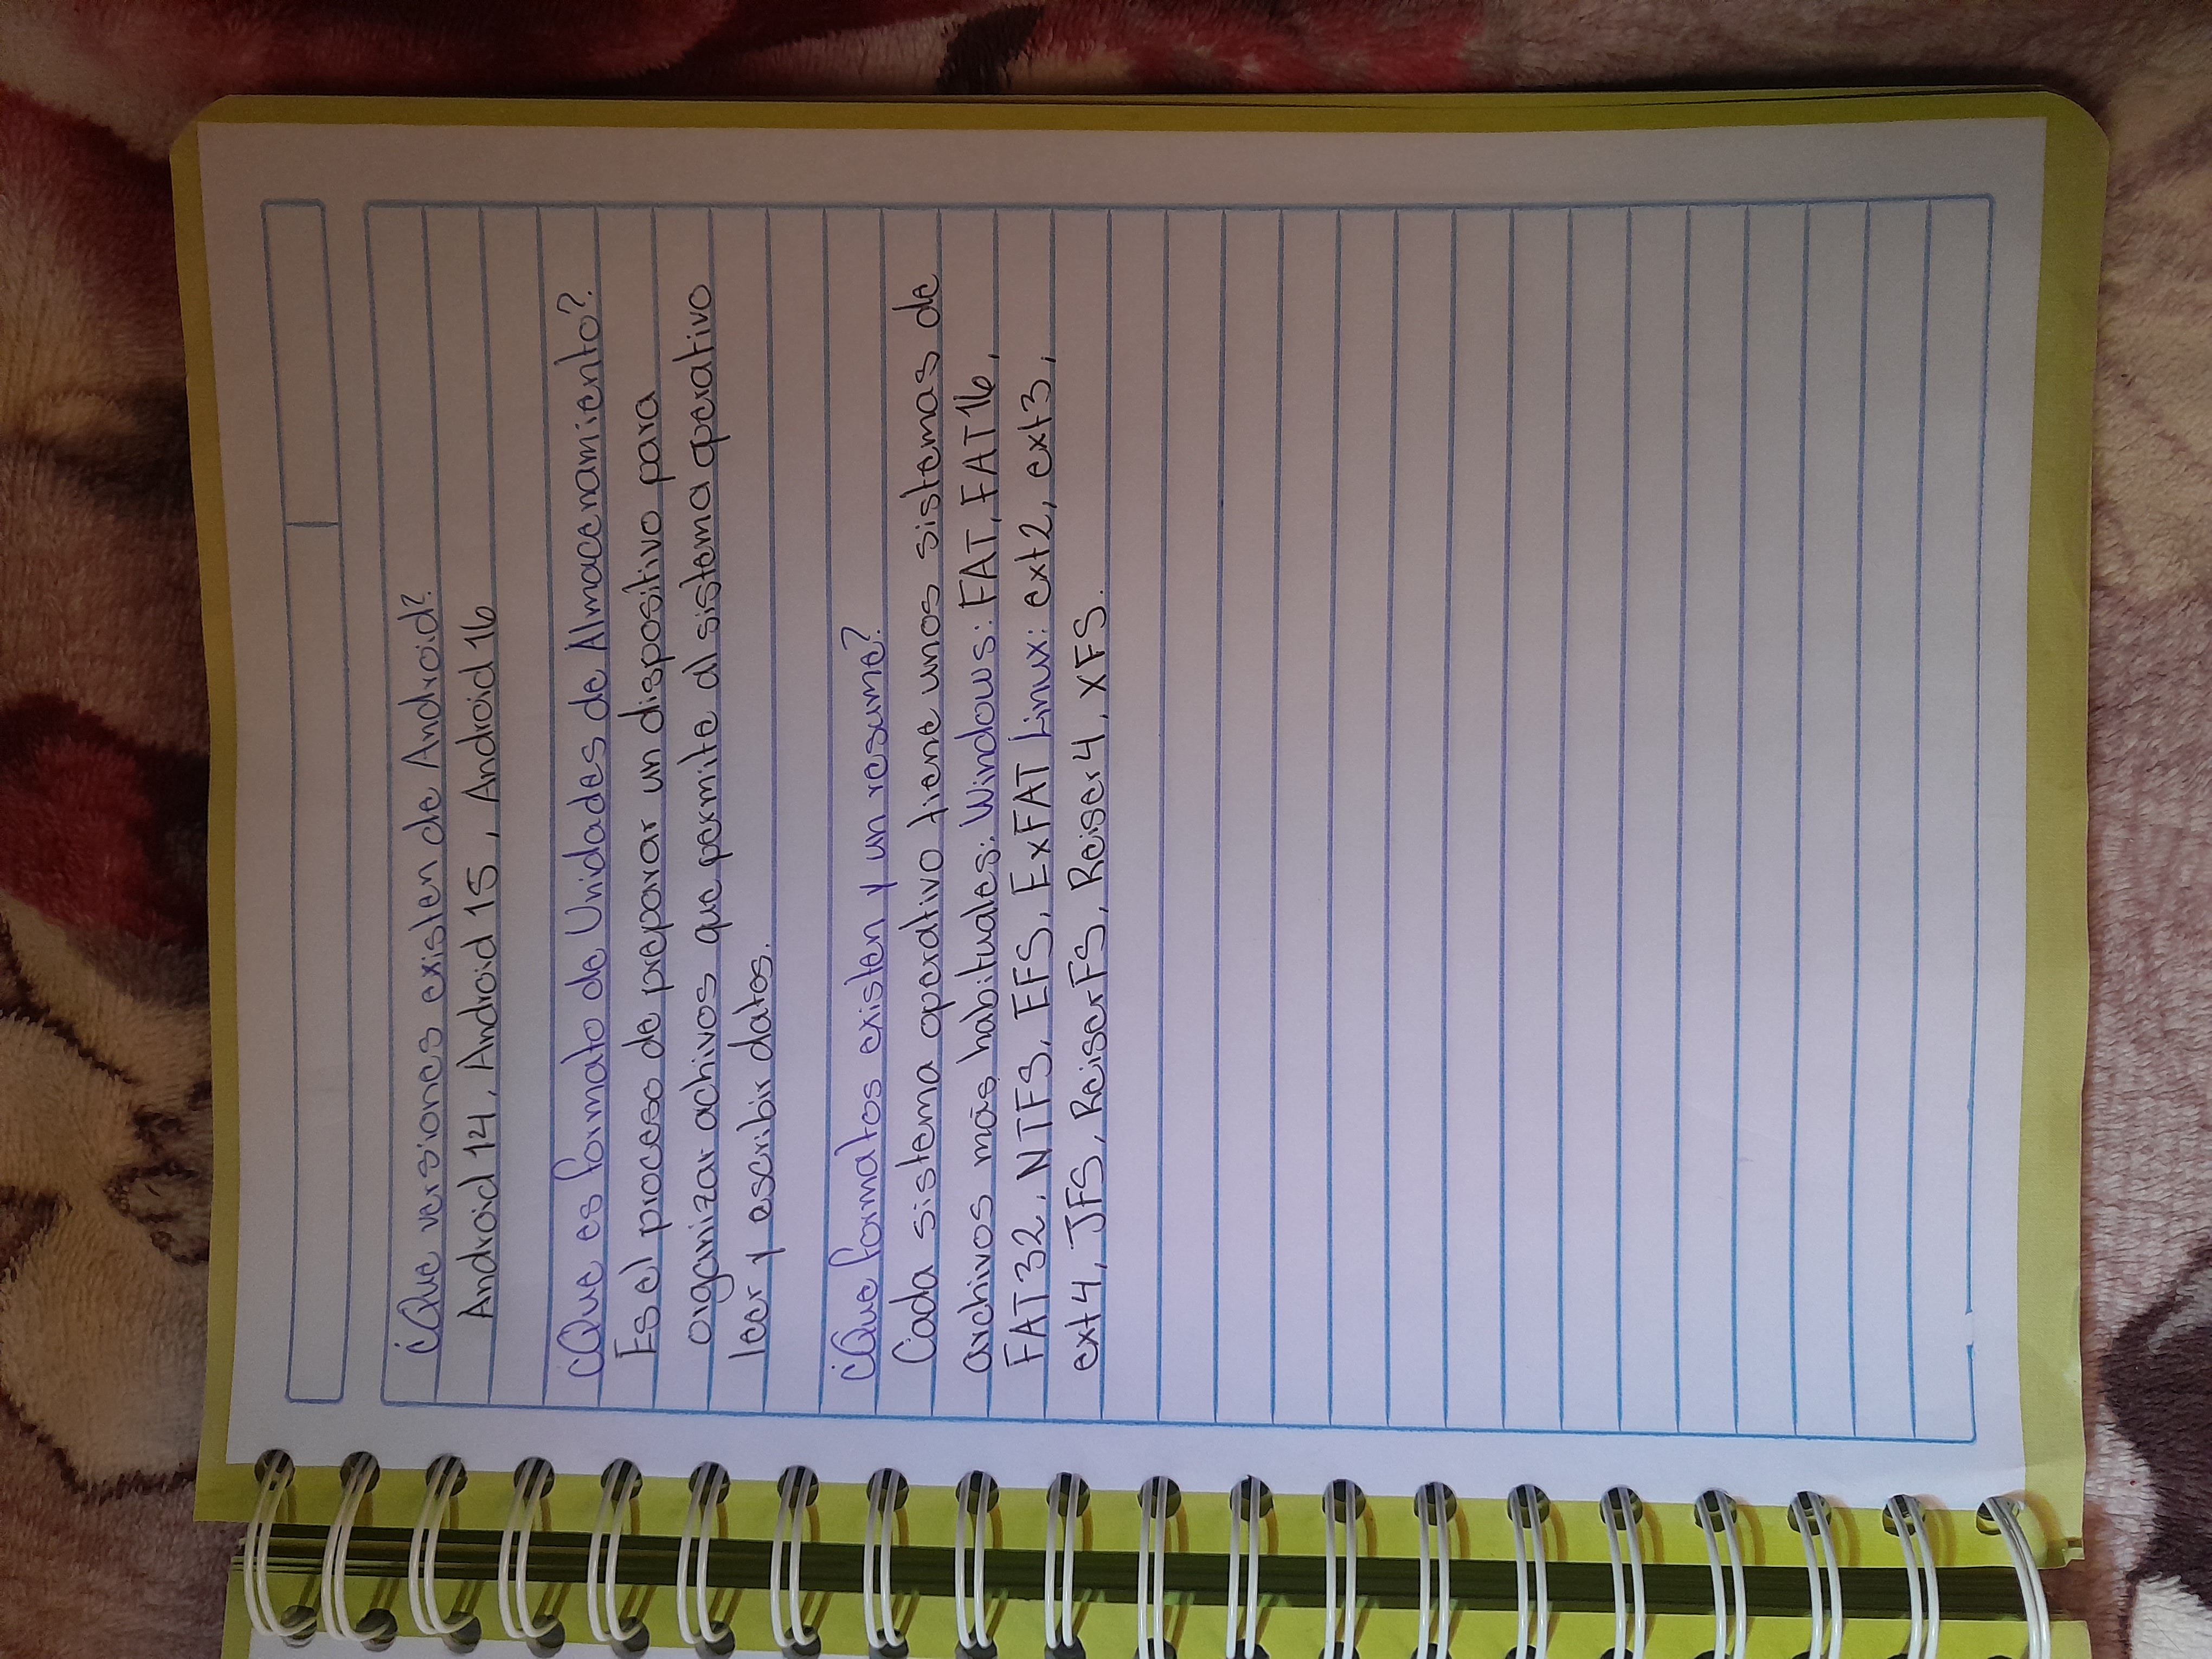 ¿Que versiones existen de Android?
Android 14, Android 15, Android 16
¿Que es formato de Unidades de Almacenamiento?
Es el proceso de preparar un dispositivo para
organizar achivos que permite al sistema operativo
leer y escribir datos.
¿Que formatos existen y un resume?
Cada sistema operativo tiene unos sistemas de
archivos más habituales: Windows: FAT, FAT16,
FAT32, NTFS, EFS, ExFAT Linux: ext2, ext3,
ext4, JFS, ReiserFS, Reiser4, XFS.